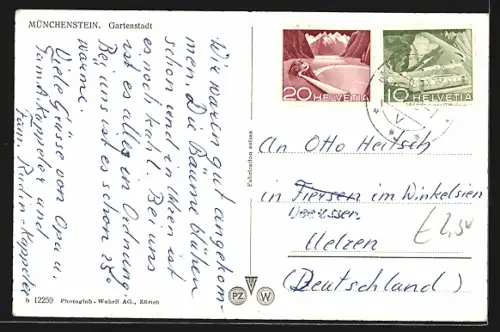 MÜNCHENSTEIN. Gartenstadt
Wir waren gut angekom-
men. Die Bäume blühen
schon und in Ihren ist
es noch kahl. Bei uns
ist es alles in Ordnung.
Bei uns ist es schon 25°
warm.
Viele Grüsse von Opa u.
Fam. A. Kappeler und
Fam. Rudin-Kappeler
12259 Photoglob-Wehrli AG., Zürich
Fabrication suisse
PZ W
20 HELVETIA
10 HELVETIA
V
An Otto Heitsch
in im Winkel
Uelzen
(Deutschland)
£ 2,50